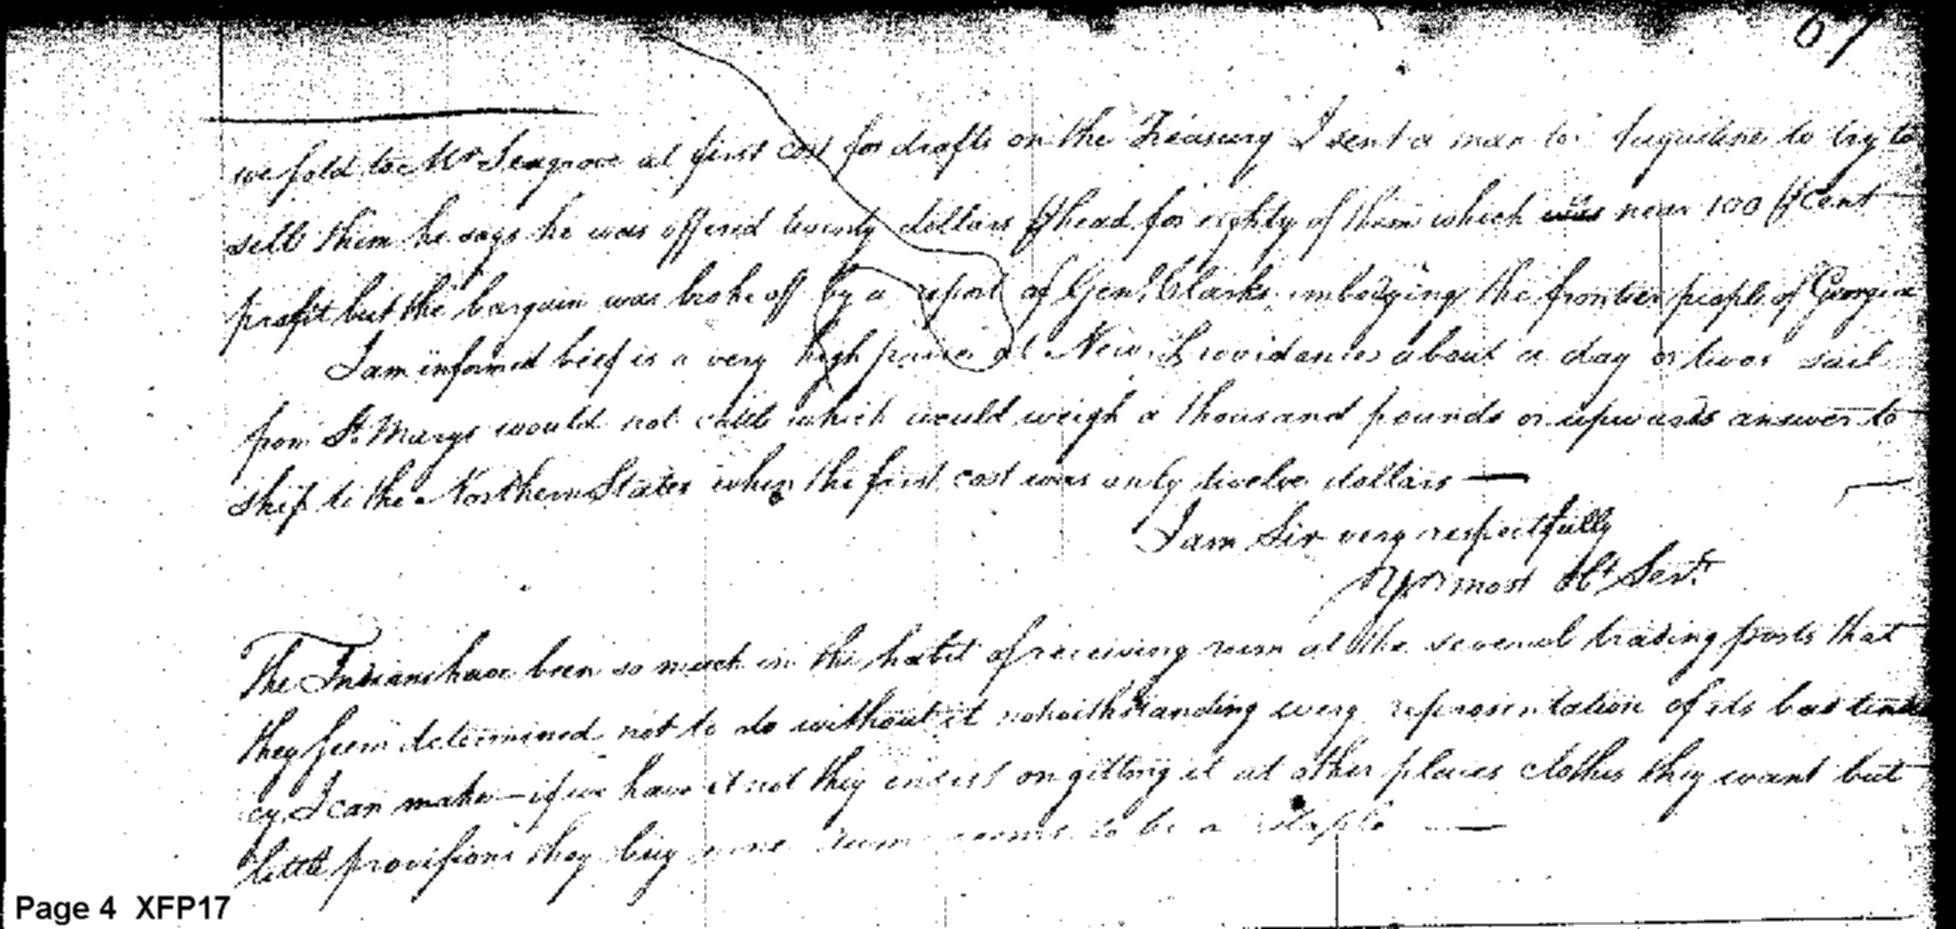 67
we sold to Mr Seagrove at first cost for drafts on the Treasury I sent a man to Augustine to try to
sell them he says he was offered twenty dollars ⅌ head for eighty of them which was near 100 ⅌ Cent
profit but the bargain was broke off by a report of Genl. Clarks imbodying the frontier people of Georgia
I am informed beef is a very high price at New Providance about a day or twos sail
from St. Marys would not cattle which would weigh a thousand pounds or upwards answer to
ship to the Northern States when the first cost was only twelve dollars —
I am Sir very respectfully
Yr most Ob Servt
The Indians have been so much in the habit of receiving rum at the several trading posts that
they seem determined not to do without it notwithstanding every representation of its bad tenden
cy I can make — if we have it not they insist on getting it at other places clothes they want but
little provisions they buy none rum seems to be a Staple —
Page 4 XFP17